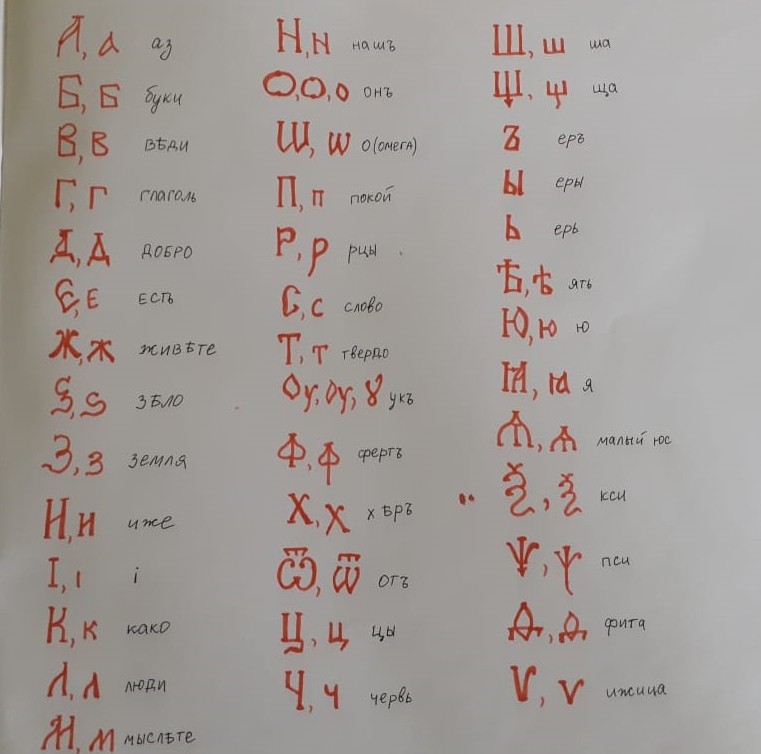 А, а аз
Б, б буки
В, в вѣди
Г, г глаголь
Д, д добро
Є, е есть
Ж, ж живѣте
Ѕ, ѕ зѣло
З, з земля
И, и иже
І, і і
К, к како
Л, л люди
М, м мыслѣте
Н, н нашъ
О, О, о онъ
Ѡ, ѡ о (омега)
П, п покой
Р, р рцы
С, с слово
Т, т твердо
Оу, оу, ȣ укъ
Ф, ф фертъ
Х, х хѣръ
Ѿ, ѿ отъ
Ц, ц цы
Ч, ч червь
Ш, ш ша
Щ, щ ща
Ъ еръ
Ы еры
Ь ерь
Ѣ, ѣ ять
Ю, ю ю
Ꙗ, ꙗ я
Ѧ, ѧ малый юс
Ѯ, ѯ кси
Ѱ, ѱ пси
Ѳ, ѳ фита
Ѵ, ѵ ижица